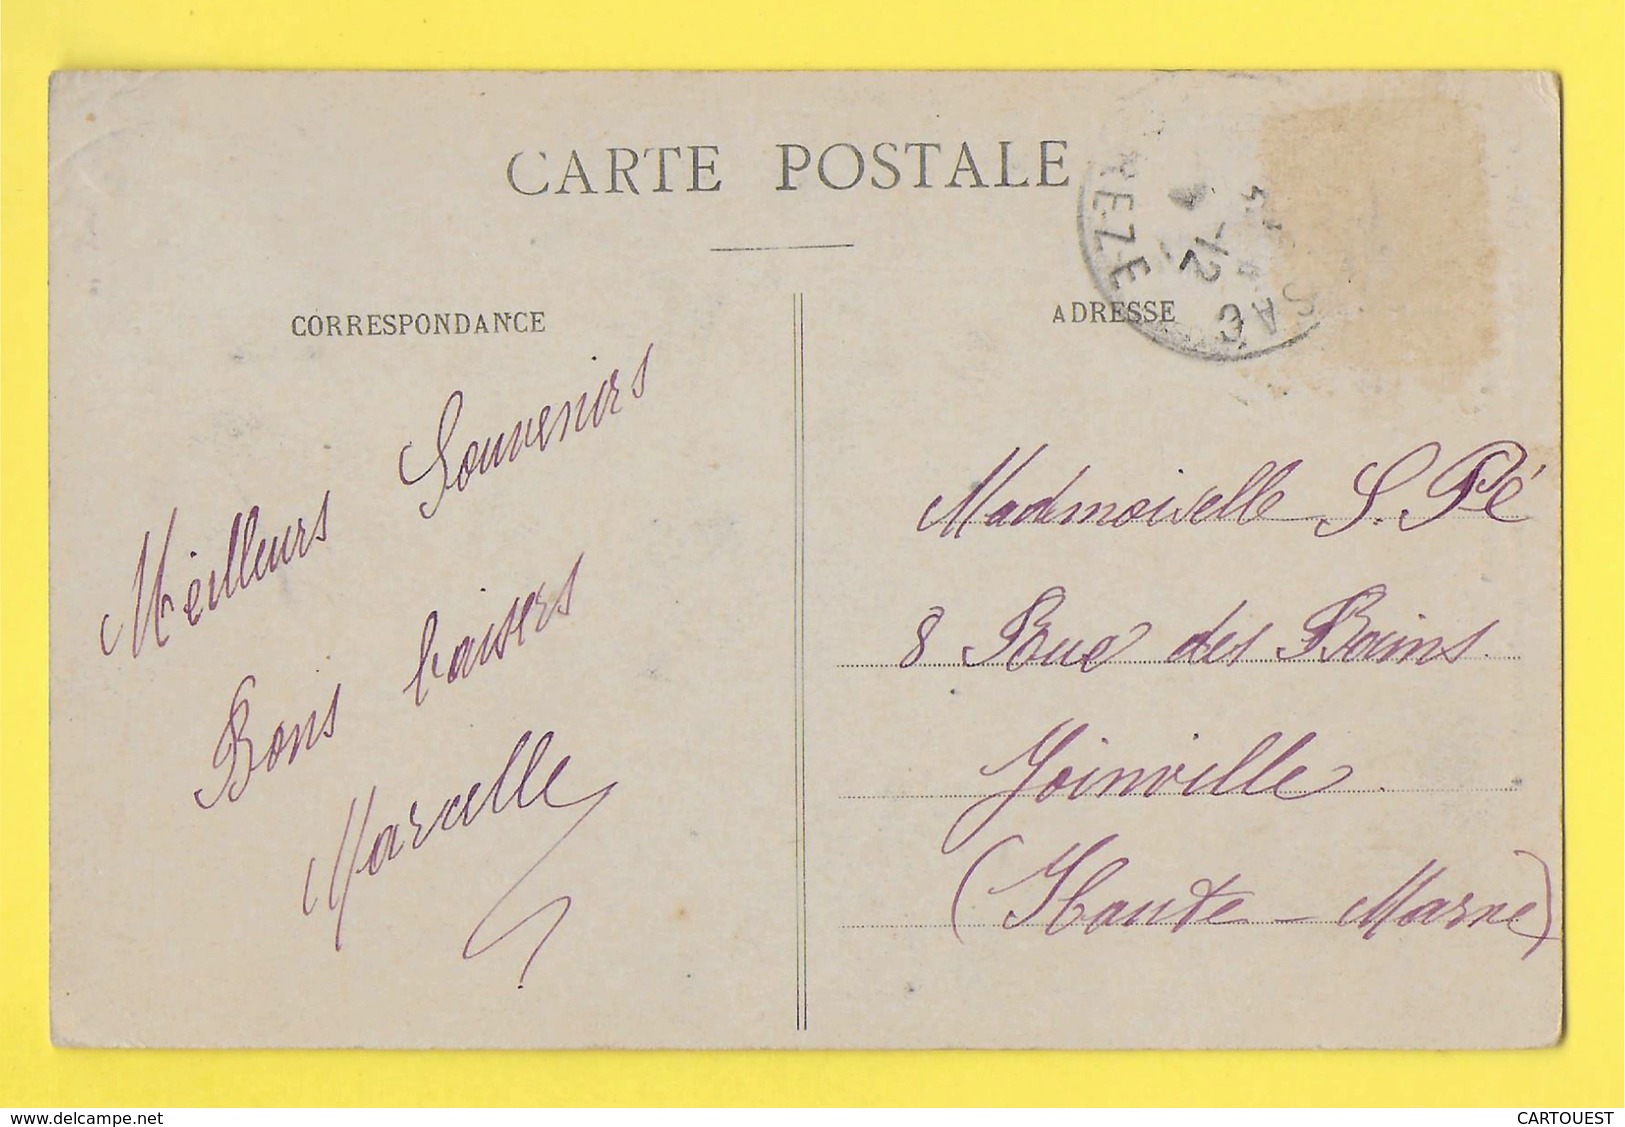 CARTE POSTALE
CORRESPONDANCE
Meilleurs Souvenirs
Bons baisers
Marcelle
ADRESSE
REZE
12
Mademoiselle S. Pé
8 Rue des Bains.
Joinville.
(Haute-Marne)
www.delcampe.net
CARTOUEST